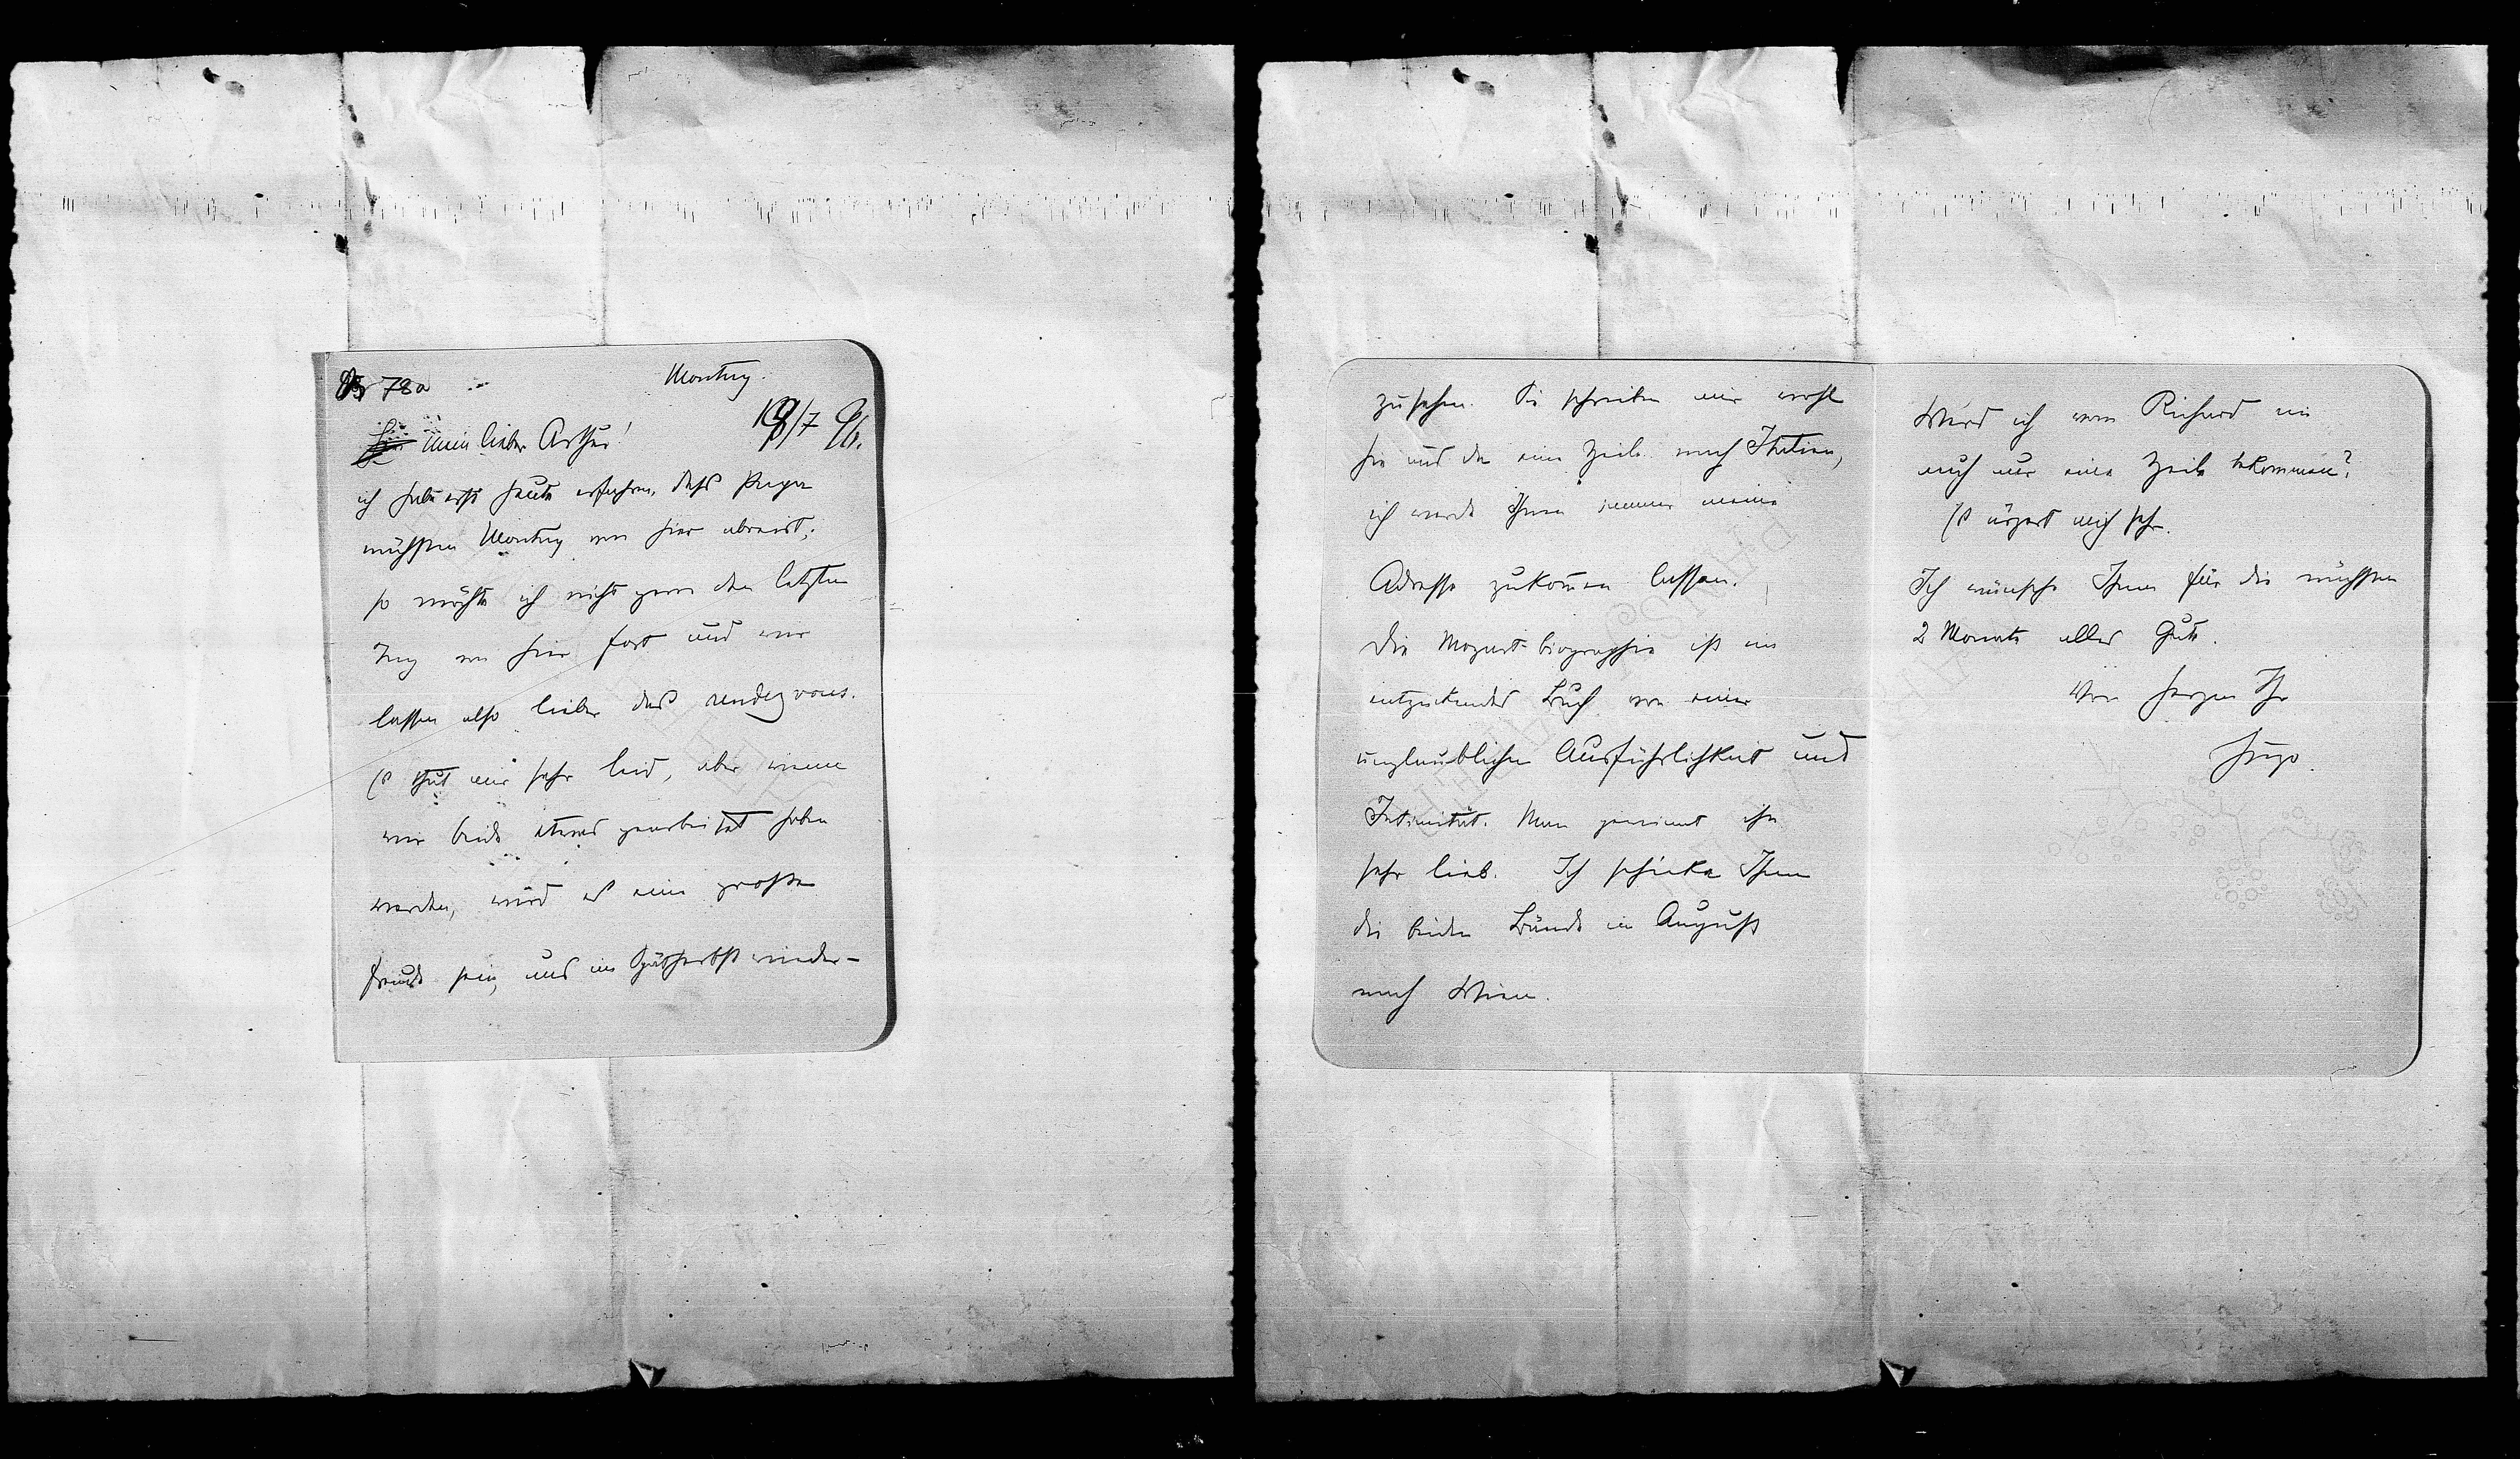 78a
Montag.
19/7 96.
mein lieber Arthur!
ich habe erst heute erfahren, dass Papa
nächsten Montag von hier abreist;
so möchte ich nicht gern den letzten
Tag von hier fort und wir
lassen also lieber das rendezvous.
Es thut mir sehr leid, aber wenn
wir beide etwas gearbeitet haben
werden, wird es eine große
Freude sein, uns im Spätherbst wieder-
zusehen. Sie schreiben mir wohl
hie und da eine Zeile nach Italien,
ich werde Ihnen immer meine
Adresse zukommen lassen.
Die Mozart-biographie ist ein
entzückendes Buch von einer
unglaublichen Ausführlichkeit und
Intimität. Man gewinnt ihn
sehr lieb. Ich schicke Ihnen
die beiden Bände im August
nach Wien.
Werd ich von Richard nie
auch nur eine Zeile bekommen?
Es ärgert mich sehr.
Ich wünsche Ihnen für die nächsten
2 Monate alles Gute.
Von Herzen Ihr
Hugo.